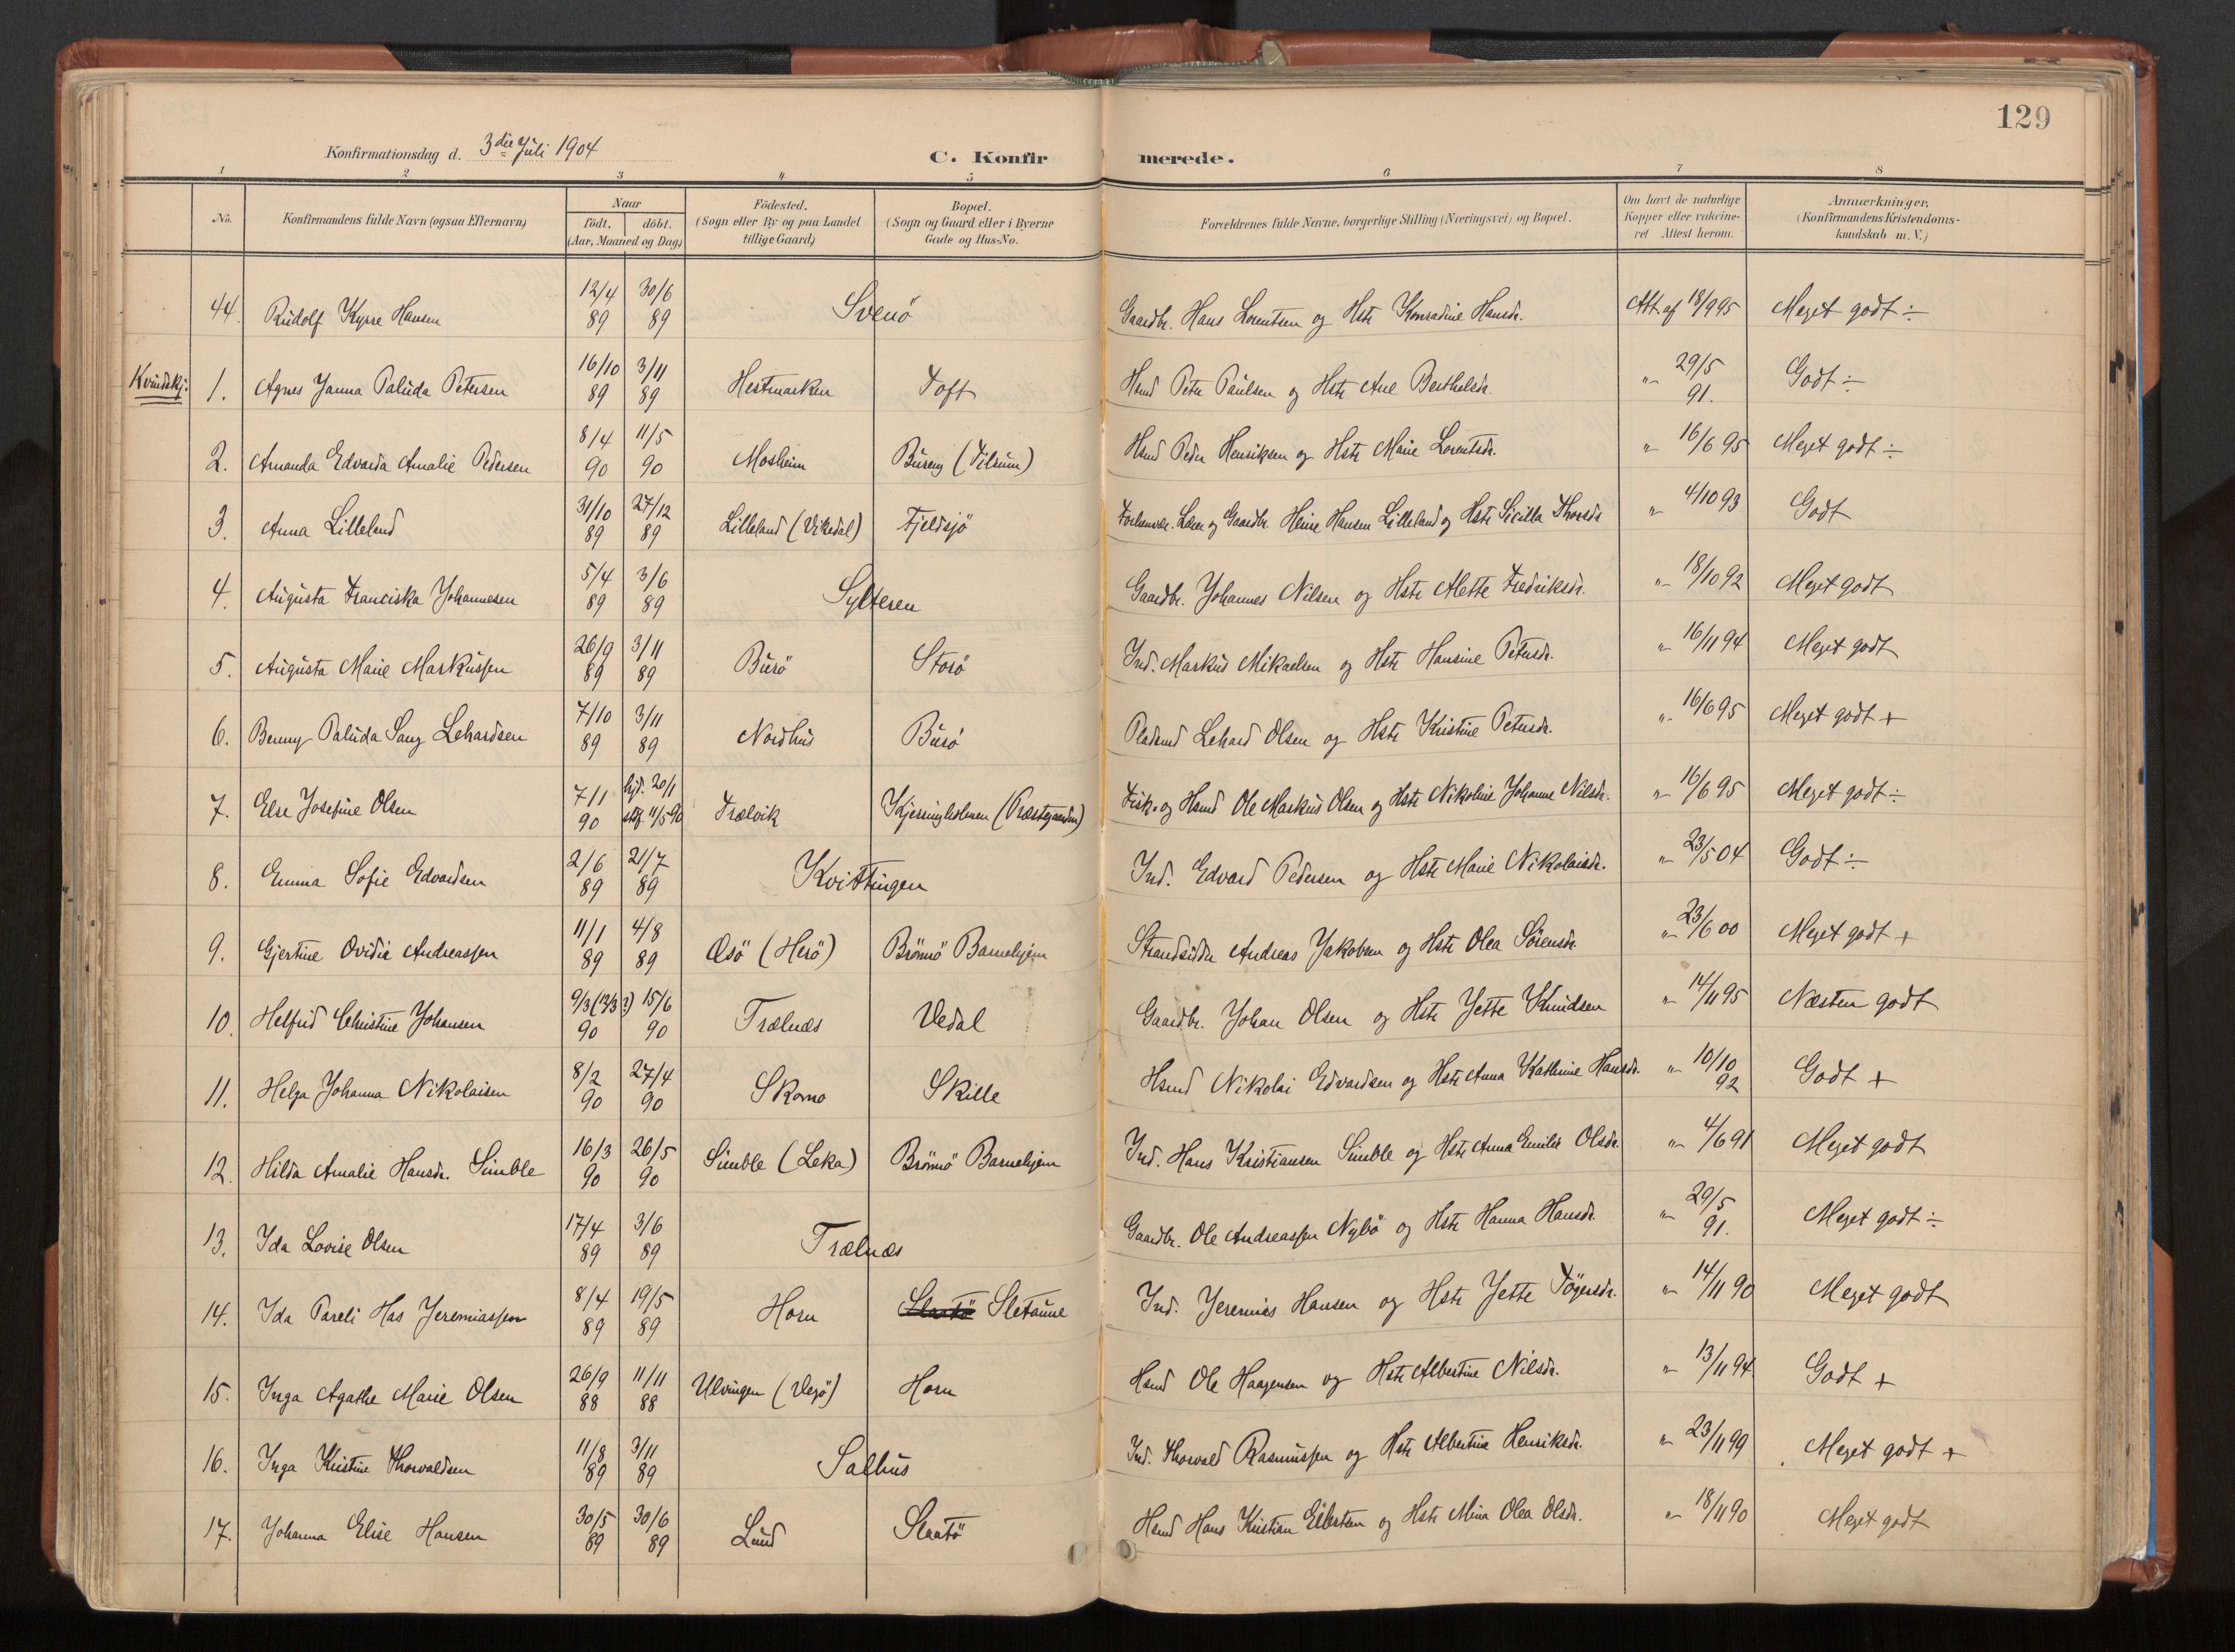 129
Konfirmationsdag d. 3die Juli 1904
C. Konfir merede.
1 2 3 4 5 6 7 8
No. Konfirmandens fulde Navn (ogsaa Efternavn) Naar födt. döbt. (Aar, Maaned og Dag) Födested. (Sogn eller By og paa Landet tillige Gaard) Bopæl. (Sogn og Gaard eller i Byerne Gade og Hus-No. Forældrenes fulde Navne, borgerlige Stilling (Næringsvei) og Bopæl. Om havt de naturlige Kopper eller vakcineret Attest herom. Anmærkninger. (Konfirmandens Kristendomskundskab m. V.)
44. Rudolf Kyrre Hansen 12/4 89 30/6 89 Svenö Gaardbr. Hans Lorentsen og Hstr Konradine Hansdr. Att. af 18/9 95 Meget godt ÷
Kvindekj:
1. Agnes Janna Paluda Petersen 16/10 89 3/11 89 Hestmarken Toft Hsmd Peter Paulsen og Hstr Ane Berthelsdr. " 29/5 91. Godt ÷
2. Amanda Edvarda Amalie Pedersen 8/4 90 11/5 90 Mosheim Bureng (Tilrum) Hsmd Peder Henriksen og Hstr Marie Lorentsdr. " 16/6 95 Meget godt ÷
3. Anna Lilleland 31/10 89 27/12 89 Lilleland (Vikedal) Fjeldsjö Forhenvær. Lærer og Gaardbr. Heine Hansen Lilleland og Hstr Sicilla Thorsdr " 4/10 93 Godt
4. Augusta Franciska Johannesen 5/4 89 3/6 89 Sylteren Gaardbr. Johannes Nilsen og Hstr Mette Fredriksdr. " 18/10 92 Meget godt
5. Augusta Marie Markussen 26/9 89 3/11 89 Burö Storö Ind. Markus Mikaelsen og Hstr Hansine Petersdr. " 16/11 94 Meget godt
6. Benny Paluda Sang Lehardsen 7/10 89 3/11 89 Nordhus Burö Pladsmd Lehard Olsen og Hstr Kristine Petersdr. " 16/6 95 Meget godt +
7. Else Josefine Olsen 7/1 90 hjd. 20/1 stf. 11/5 90 Trælvik Kjerringholmen (Præstegaarden) Fisk. og Hsmd Ole Markus Olsen og Hstr Nikoline Johanne Nilsdr. " 16/6 95 Meget godt ÷
8. Emma Sofie Edvardsen 2/6 89 21/7 89 Kvittingen Ind. Edvard Pedersen og Hstr Marie Nikolaisdr. " 23/5 04 Godt ÷
9. Gjertine Ovidie Andreassen 11/1 89 4/8 89 Æsö (Herö) Brönnö Barnehjem Strandsidder Andreas Jakobsen og Hstr Olea Sörensdr. " 23/6 00 Meget godt +
10. Helfrid Christine Johansen 9/3 (12/3?) 90 15/6 90 Trælnæs Vedal Gaardbr. Johan Olsen og Hstr Jette Knudsen " 14/11 95 Næsten godt
11. Helga Johanna Nikolaisen 8/2 90 27/4 90 Skomo Skille Hsmd Nikolai Edvardsen og Hstr Anna Kathrine Hansdr. " 10/10 92 Godt +
12. Hilda Amalie Hansdr. Simble 16/3 90 26/5 90 Simble (Leka) Brönnö Barnehjem Ind. Hans Kristiansen Simble og Hstr Anna Emilie Olsdr. " 4/6 91 Meget godt
13. Ida Lovise Olsen 17/4 89 3/6 89 Trælnæs Gaardbr. Ole Andreassen Nybö og Hstr Hanna Hansdr. " 29/5 91. Meget godt ÷
14. Ida Pareli Has Jeremiassen 8/4 89 19/5 89 Horn Slaatö Sletaune Ind. Jeremias Hansen og Hstr Jette Tögersdr. " 14/11 90 Meget godt
15. Inga Agathe Marie Olsen 26/9 88 11/11 88 Ulvingen (Vegö) Horn Hsmd Ole Haagensen og Hstr Albertine Nilsdr. " 13/11 94. Godt +
16. Inga Kristine Thorvaldsen 11/8 89 3/11 89 Salhus Ind. Thorvald Rasmussen og Hstr Albertine Henriksdr. " 23/11 99 Meget godt +
17. Johanna Elise Hansen 30/5 89 30/6 89 Lund Slaatö Hsmd Hans Kristian Eilertsen og Hstr Mina Olea Olsdr. " 18/11 90 Meget godt